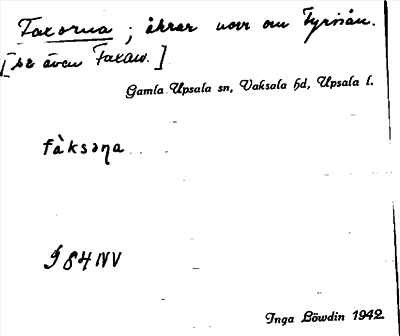 Faxorna ; åkrar norr om Fyrisån.
[se även Faxan.]
Gamla Upsala sn, Vaksala hd, Upsala l.
fàksəɳa
I 84 NV
Inga Löwdin 1942.